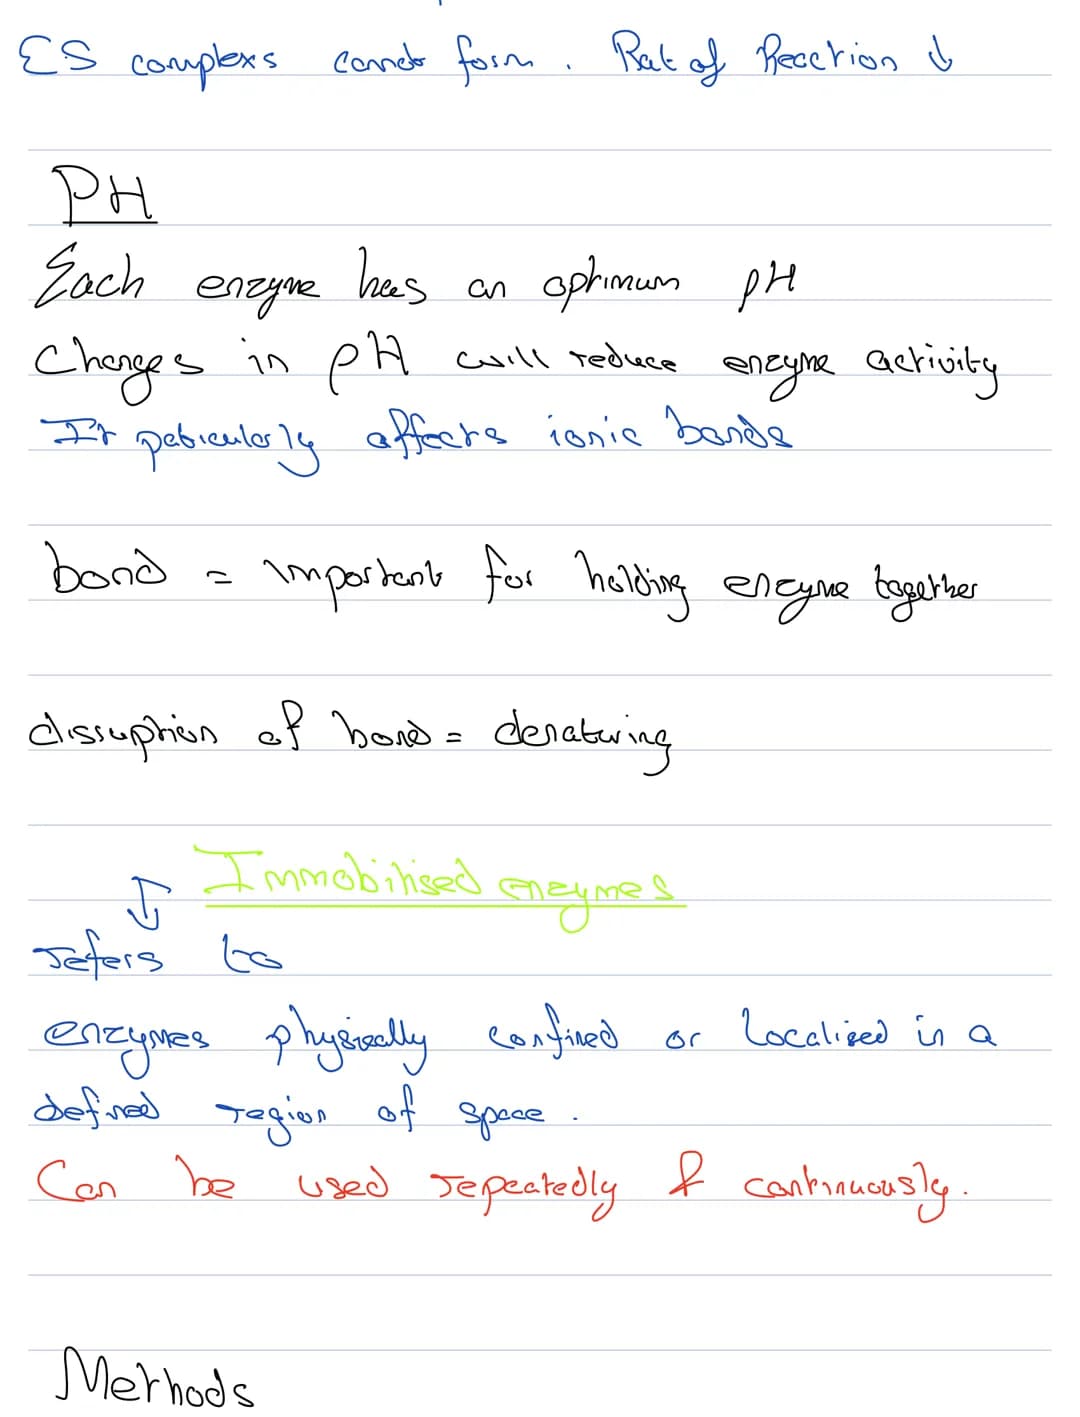 ES complexs cannot form. Rate of Reaction ↓
PH
Each enzyme has an optimum pH
Changes in pH will reduce enzyme activity
It paticularly affects ionic bonds
bond = important for holding enzyme together
dissuption of bond = denaturing
Immobilised enzymes
↓
refers to
enzymes physically confined or localised in a
defined region of space.
Can be used repeatedly & continuously.
Methods